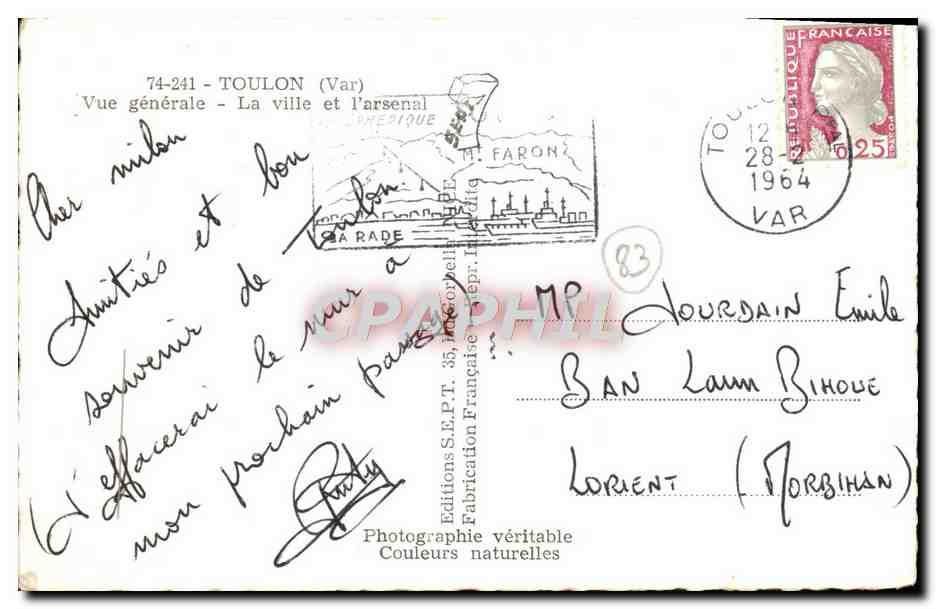 74-241 - TOULON (Var)
Vue générale - La ville et l'arsenal
Cher milou
Amitiés et bon
souvenir de Toulon.
(J'effacerai le mur à
mon prochain passage)
Editions S.E.P.T. 35,
Fabrication Française - Repr. Interdite
Photographie véritable
Couleurs naturelles
Mt FARON
SA RADE
TOULON
12
28-2
1964
VAR
REPUBLIQUE FRANÇAISE
POSTES
0,25
83
CPAPHIL
MP JOURDAIN Emile
BAN Lann BIHOUE
LORIENT (MORBIHAN)